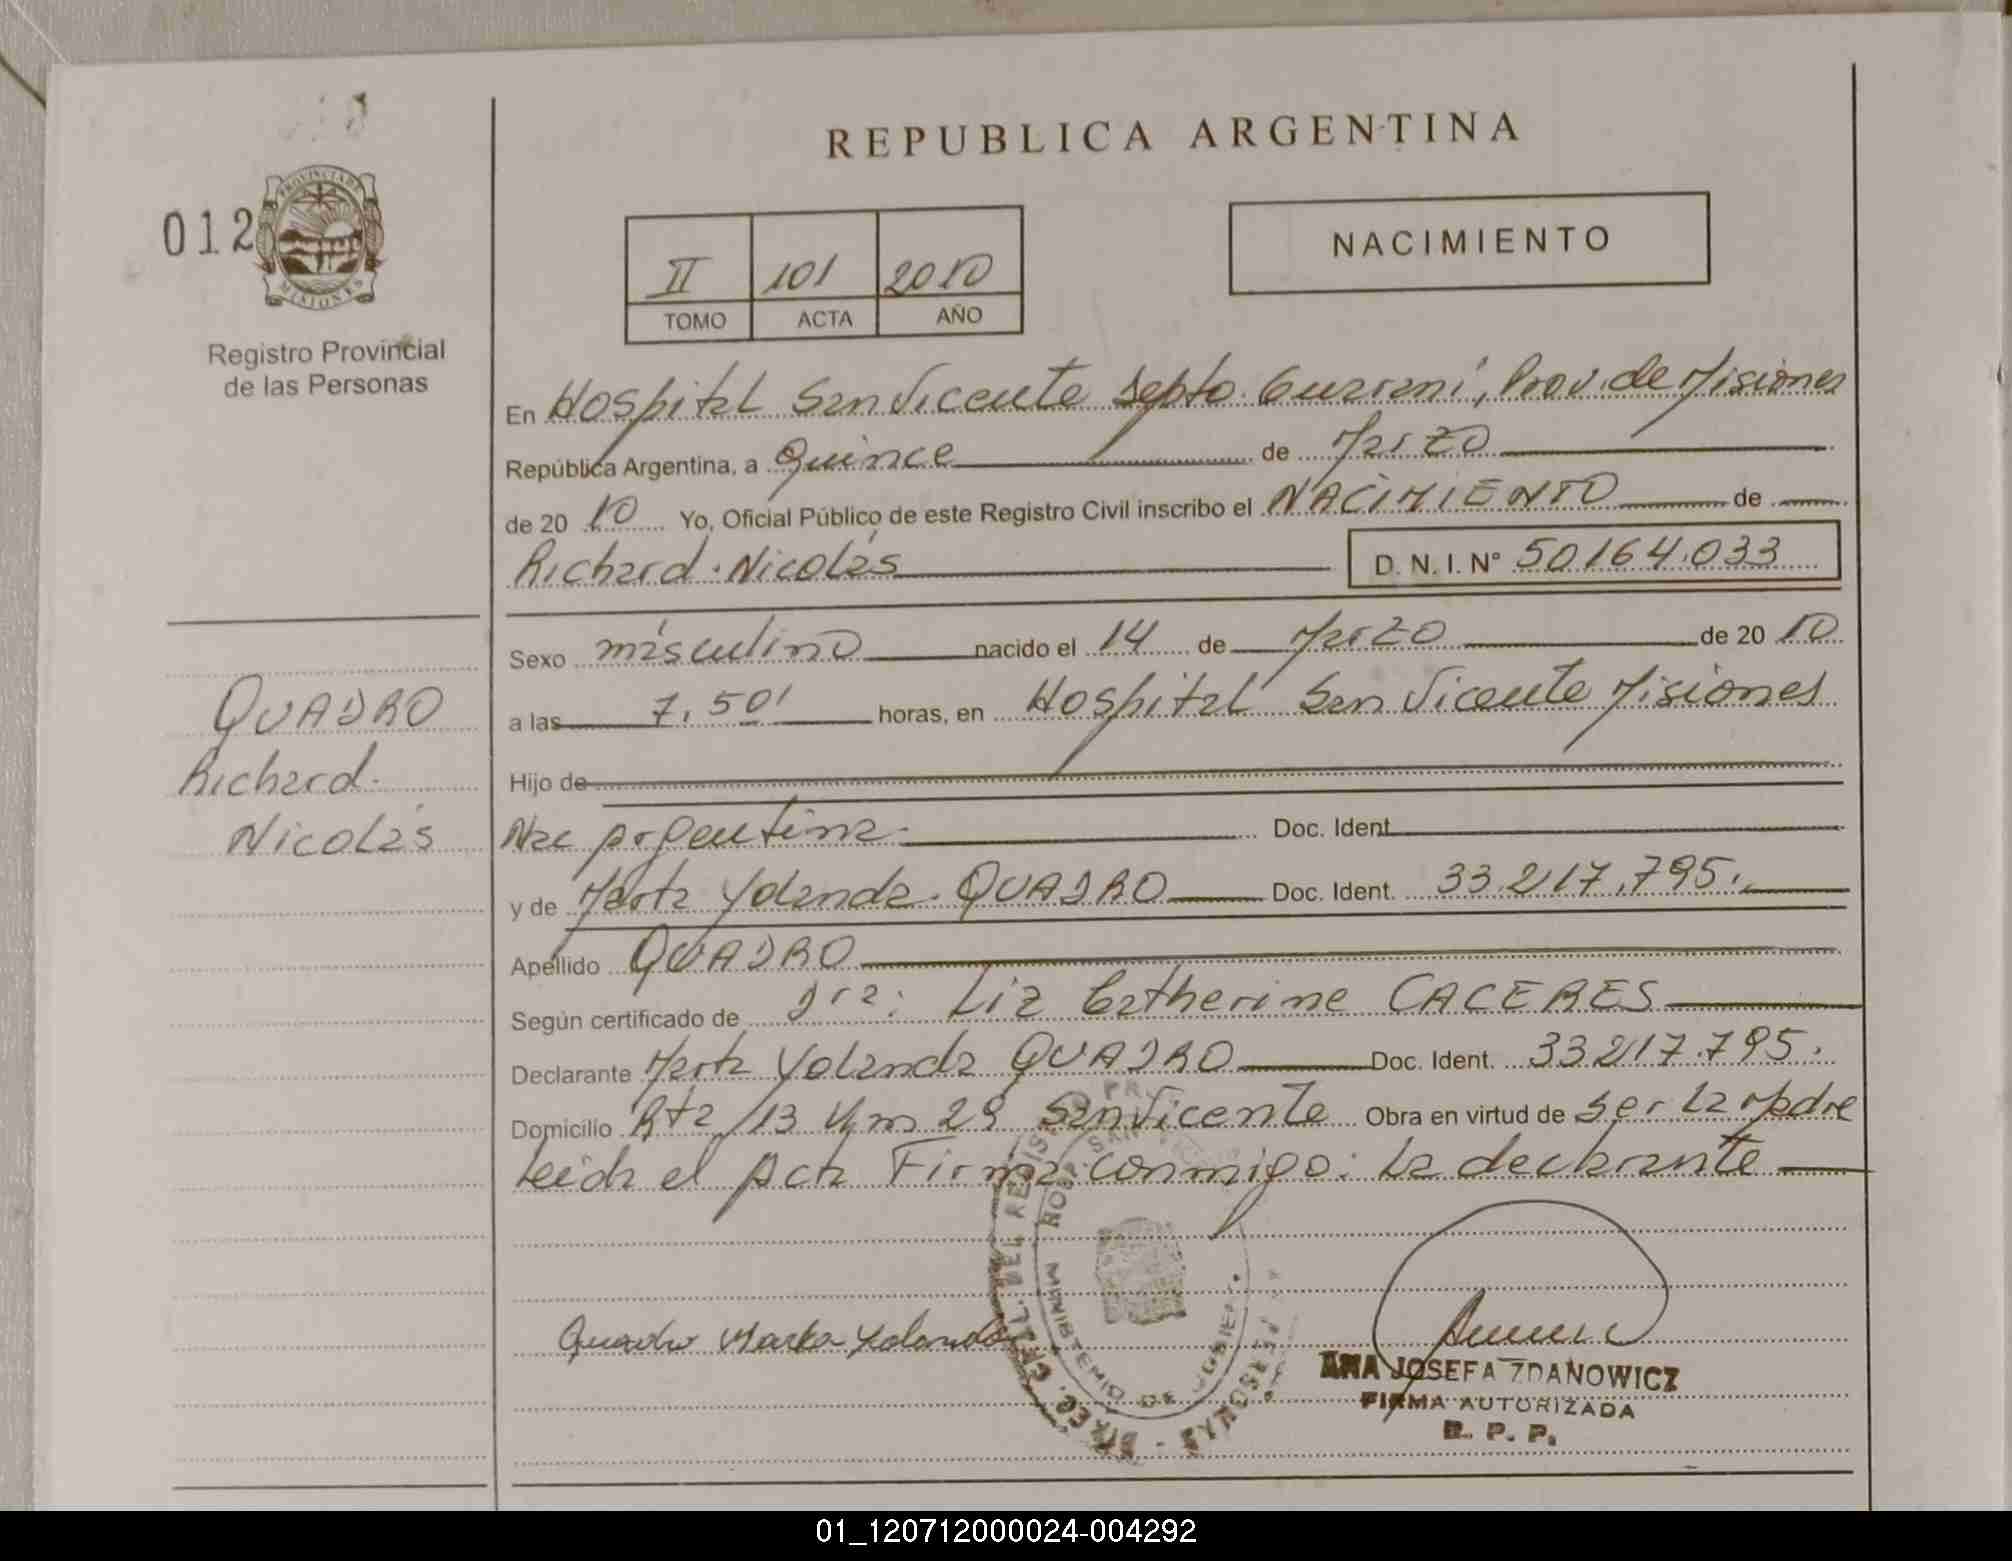 REPUBLICA ARGENTINA
012
PROVINCIA DE
MISIONES
Registro Provincial
de las Personas
II 101 2010
TOMO ACTA AÑO
NACIMIENTO
En Hospital San Vicente Depto. Guaraní, Prov. de Misiones
República Argentina, a Quince de Marzo
de 20 10 Yo, Oficial Público de este Registro Civil inscribo el NACIMIENTO de
Richard. Nicolás
D. N. I. N° 50164.033
QUADRO
Richard.
Nicolás
Sexo másculino nacido el 14 de Marzo de 20 10
a las 7,50' horas, en Hospital San Vicente Misiones
Hijo de
Nac Argentina. Doc. Ident.
y de Marta Yolanda. QUADRO Doc. Ident. 33.217.795.
Apellido QUADRO
Según certificado de Dra: Liz Catherine CACERES
Declarante Marta Yolanda QUADRO Doc. Ident. 33217.795.
Domicilio Rta 13 Km 29 San Vicente Obra en virtud de ser La Madre
Leída el Acta Firma conmigo: La declarante
Quadro Marta Yolanda
MINISTERIO DE
ANA JOSEFA ZDANOWICZ
FIRMA AUTORIZADA
R. P. P.
01_120712000024-004292